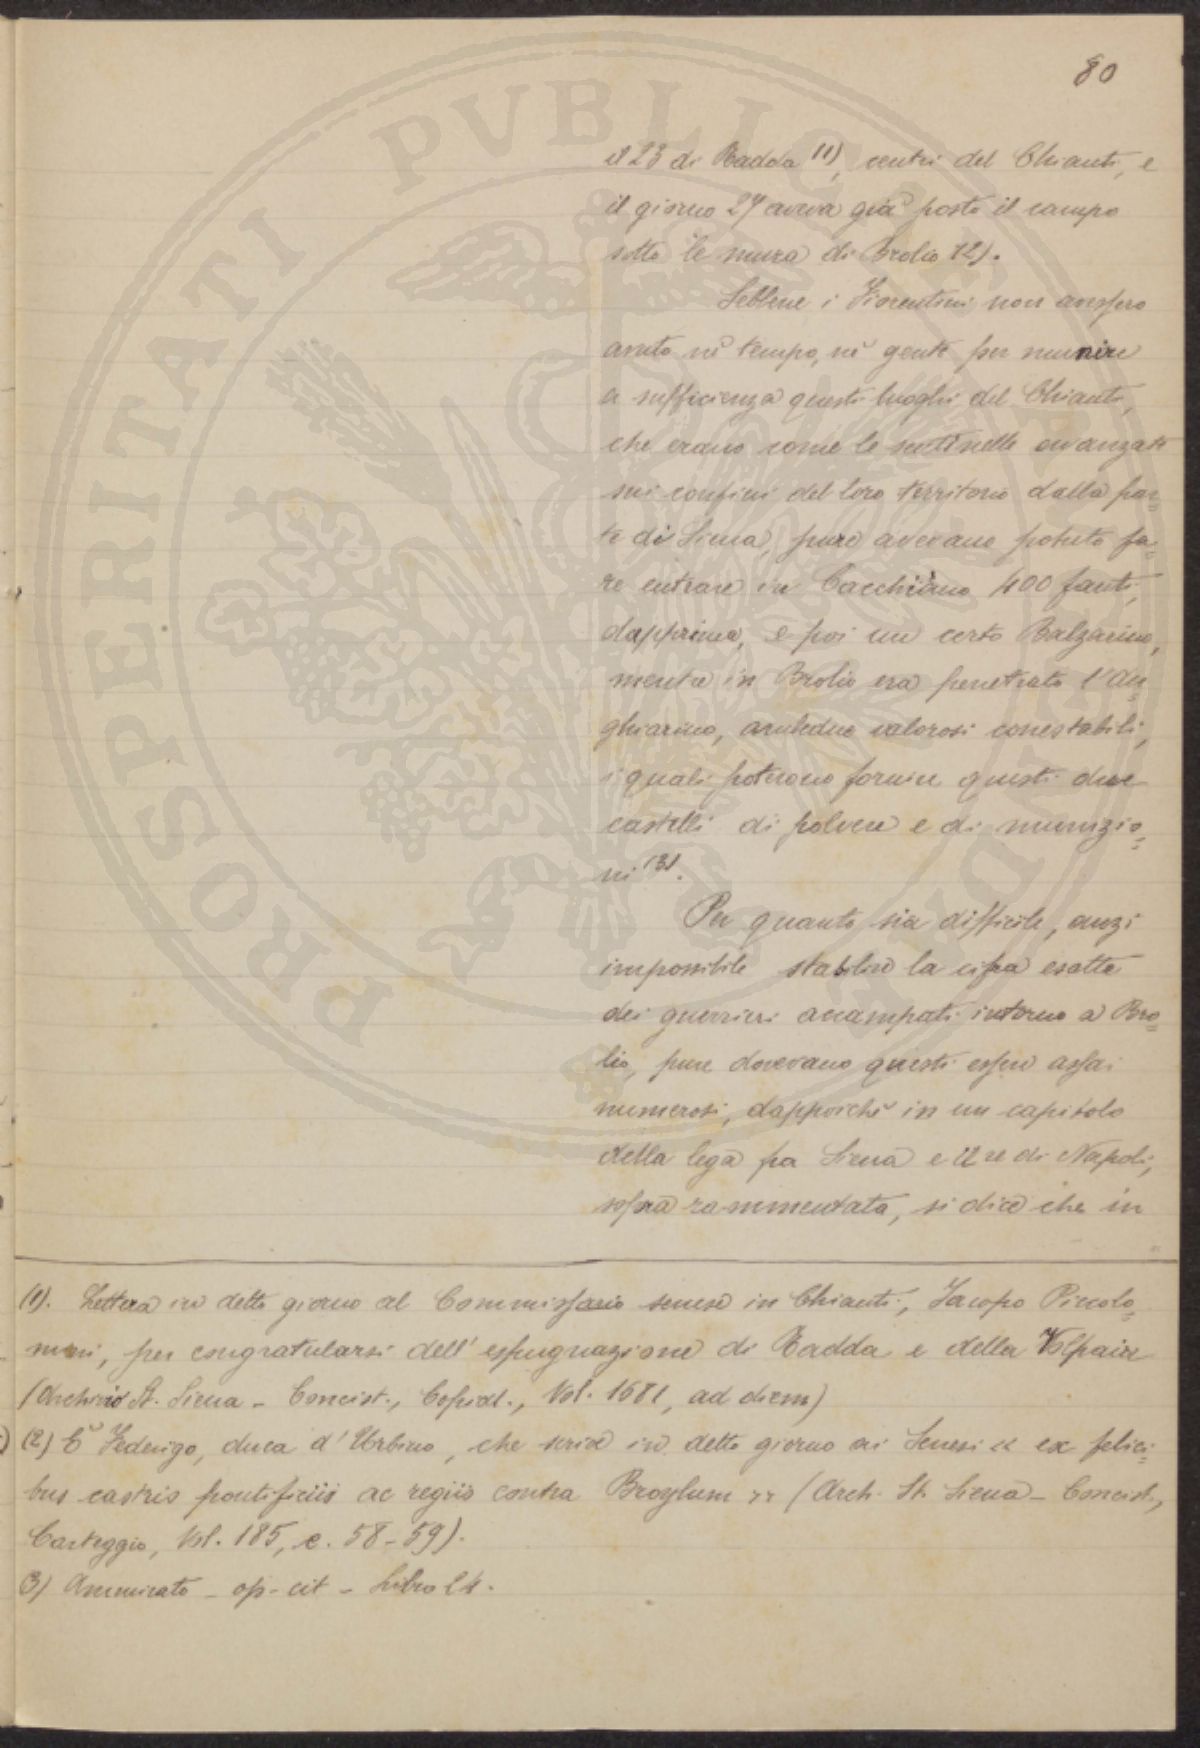 80
il 23 di Radda (1), centri del Chianti, e
il giorno 27 aveva già posto il campo
sotto le mura di Brolio (2).
Sebbene i Fiorentini non avessero
avuto nè tempo, nè gente per munire
a sufficienza questi luoghi del Chianti,
che erano come le sentinelle avanzate
sui confini del loro territorio dalla par=
te di Siena, pure avevano potuto fa=
re entrare in Cacchiano 400 fanti,
dapprima, e poi un certo Balzarino,
mentre in Brolio era penetrato l'An=
ghiarino, ambedue valorosi conestabili,
i quali poterono fornire questi due
castelli di polvere e di munizio=
ni (3).
Per quanto sia difficile, anzi
impossibile stabilire la cifra esatta
dei guerrieri accampati intorno a Bro=
lio, pure dovevano questi essere assai
numerosi, dappoichè in un capitolo
della lega fra Siena e il re di Napoli,
sopra rammentata, si dice che in
(1). Lettera in detto giorno al Commissario senese in Chianti, Jacopo Piccolo=
mini, per congratularsi dell'espugnazione di Radda e della Volpaia
(Archivio St. Siena - Concist., Copial., Vol. 1681, ad diem)
(2) È Federigo, duca d'Urbino, che scrive in detto giorno ai Senesi « ex felici=
bus castris pontificiis ac regiis contra Broylum » (Arch. St. Siena - Concist.,
Carteggio, Vol. 185, c. 58-59).
(3) Ammirato - op. cit - Libro 24.
PROSPERITATI PVBLICAE AVGENDAE